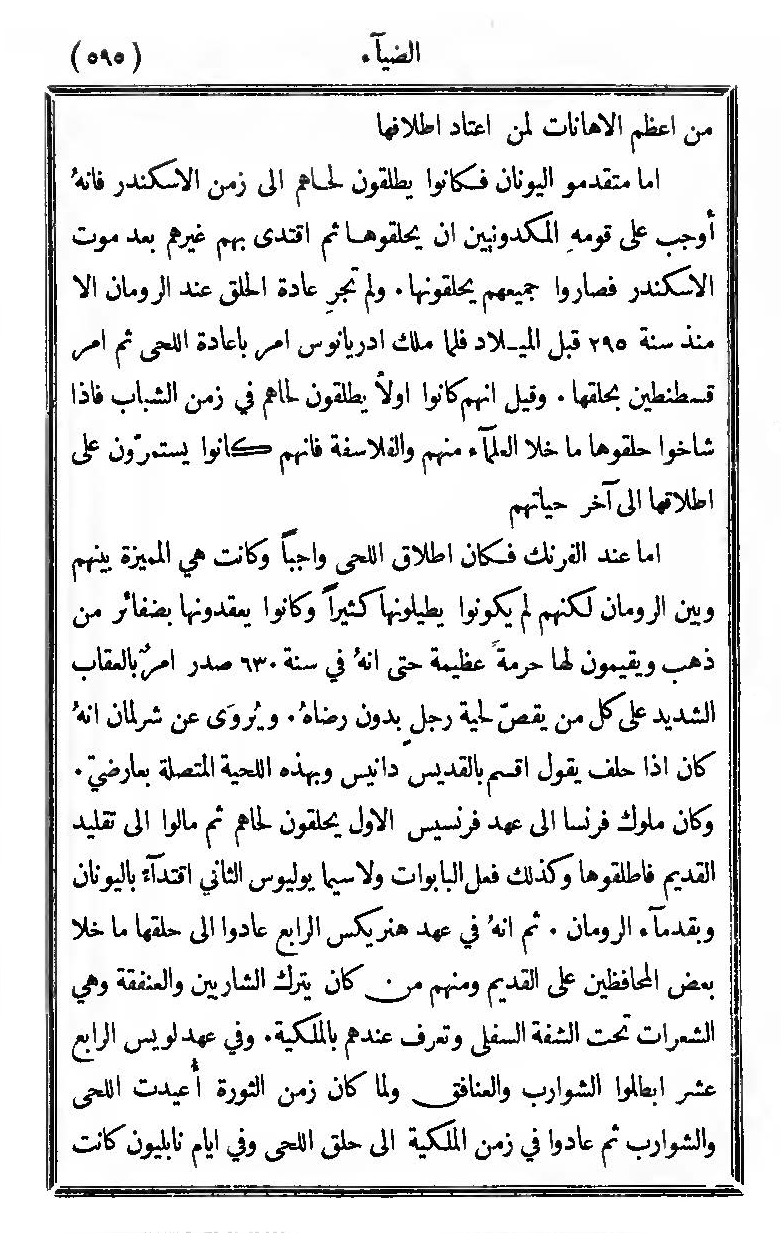 الضيآء (٥٩٥)
من اعظم الاهانات لمن اعتاد اطلاقها
اما متقدمو اليونان فكانوا يطلقون لحاهم الى زمن الاسكندر فانهُ
أوجب على قومهِ المكدونيين ان يحلقوها ثم اقتدى بهم غيرهم بعد موت
الاسكندر فصاروا جميعهم يحلقونها . ولم تجرِ عادة الحلق عند الرومان الا
منذ سنة ٢٩٥ قبل الميلاد فلما ملك ادريانوس امر باعادة اللحى ثم امر
قسطنطين بحلقها . وقيل انهم كانوا اولاً يطلقون لحاهم في زمن الشباب فاذا
شاخوا حلقوها ما خلا العلمآء منهم والفلاسفة فانهم كانوا يستمرّون على
اطلاقها الى آخر حياتهم
اما عند الفرنك فكان اطلاق اللحى واجباً وكانت هي المميزة بينهم
وبين الرومان لكنهم لم يكونوا يطيلونها كثيراً وكانوا يعقدونها بضفائر من
ذهب ويقيمون لها حرمةً عظيمة حتى انهُ في سنة ٦٣٠ صدر امرٌ بالعقاب
الشديد على كل من يقصّ لحية رجلٍ بدون رضاهُ . ويُروَى عن شرلمان انهُ
كان اذا حلف يقول اقسم بالقديس دانيس وبهذه اللحية المتصلة بعارضيّ .
وكان ملوك فرنسا الى عهد فرنسيس الاول يحلقون لحاهم ثم مالوا الى تقليد
القديم فاطلقوها وكذلك فعل البابوات ولاسيما يوليوس الثاني اقتدآءً باليونان
وبقدمآء الرومان . ثم انهُ في عهد هنريكس الرابع عادوا الى حلقها ما خلا
بعض المحافظين على القديم ومنهم من كان يترك الشاربين والعنفقة وهي
الشعرات تحت الشفة السفلى وتعرف عندهم بالملكية . وفي عهد لويس الرابع
عشر ابطلوا الشوارب والعنافق ولما كان زمن الثورة أُعيدت اللحى
والشوارب ثم عادوا في زمن الملكية الى حلق اللحى وفي ايام نابليون كانت